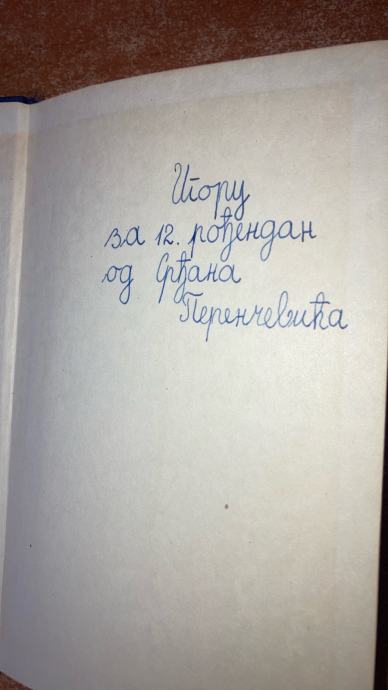 Игору
за 12. рођендан
од Срђана
Перенчевића